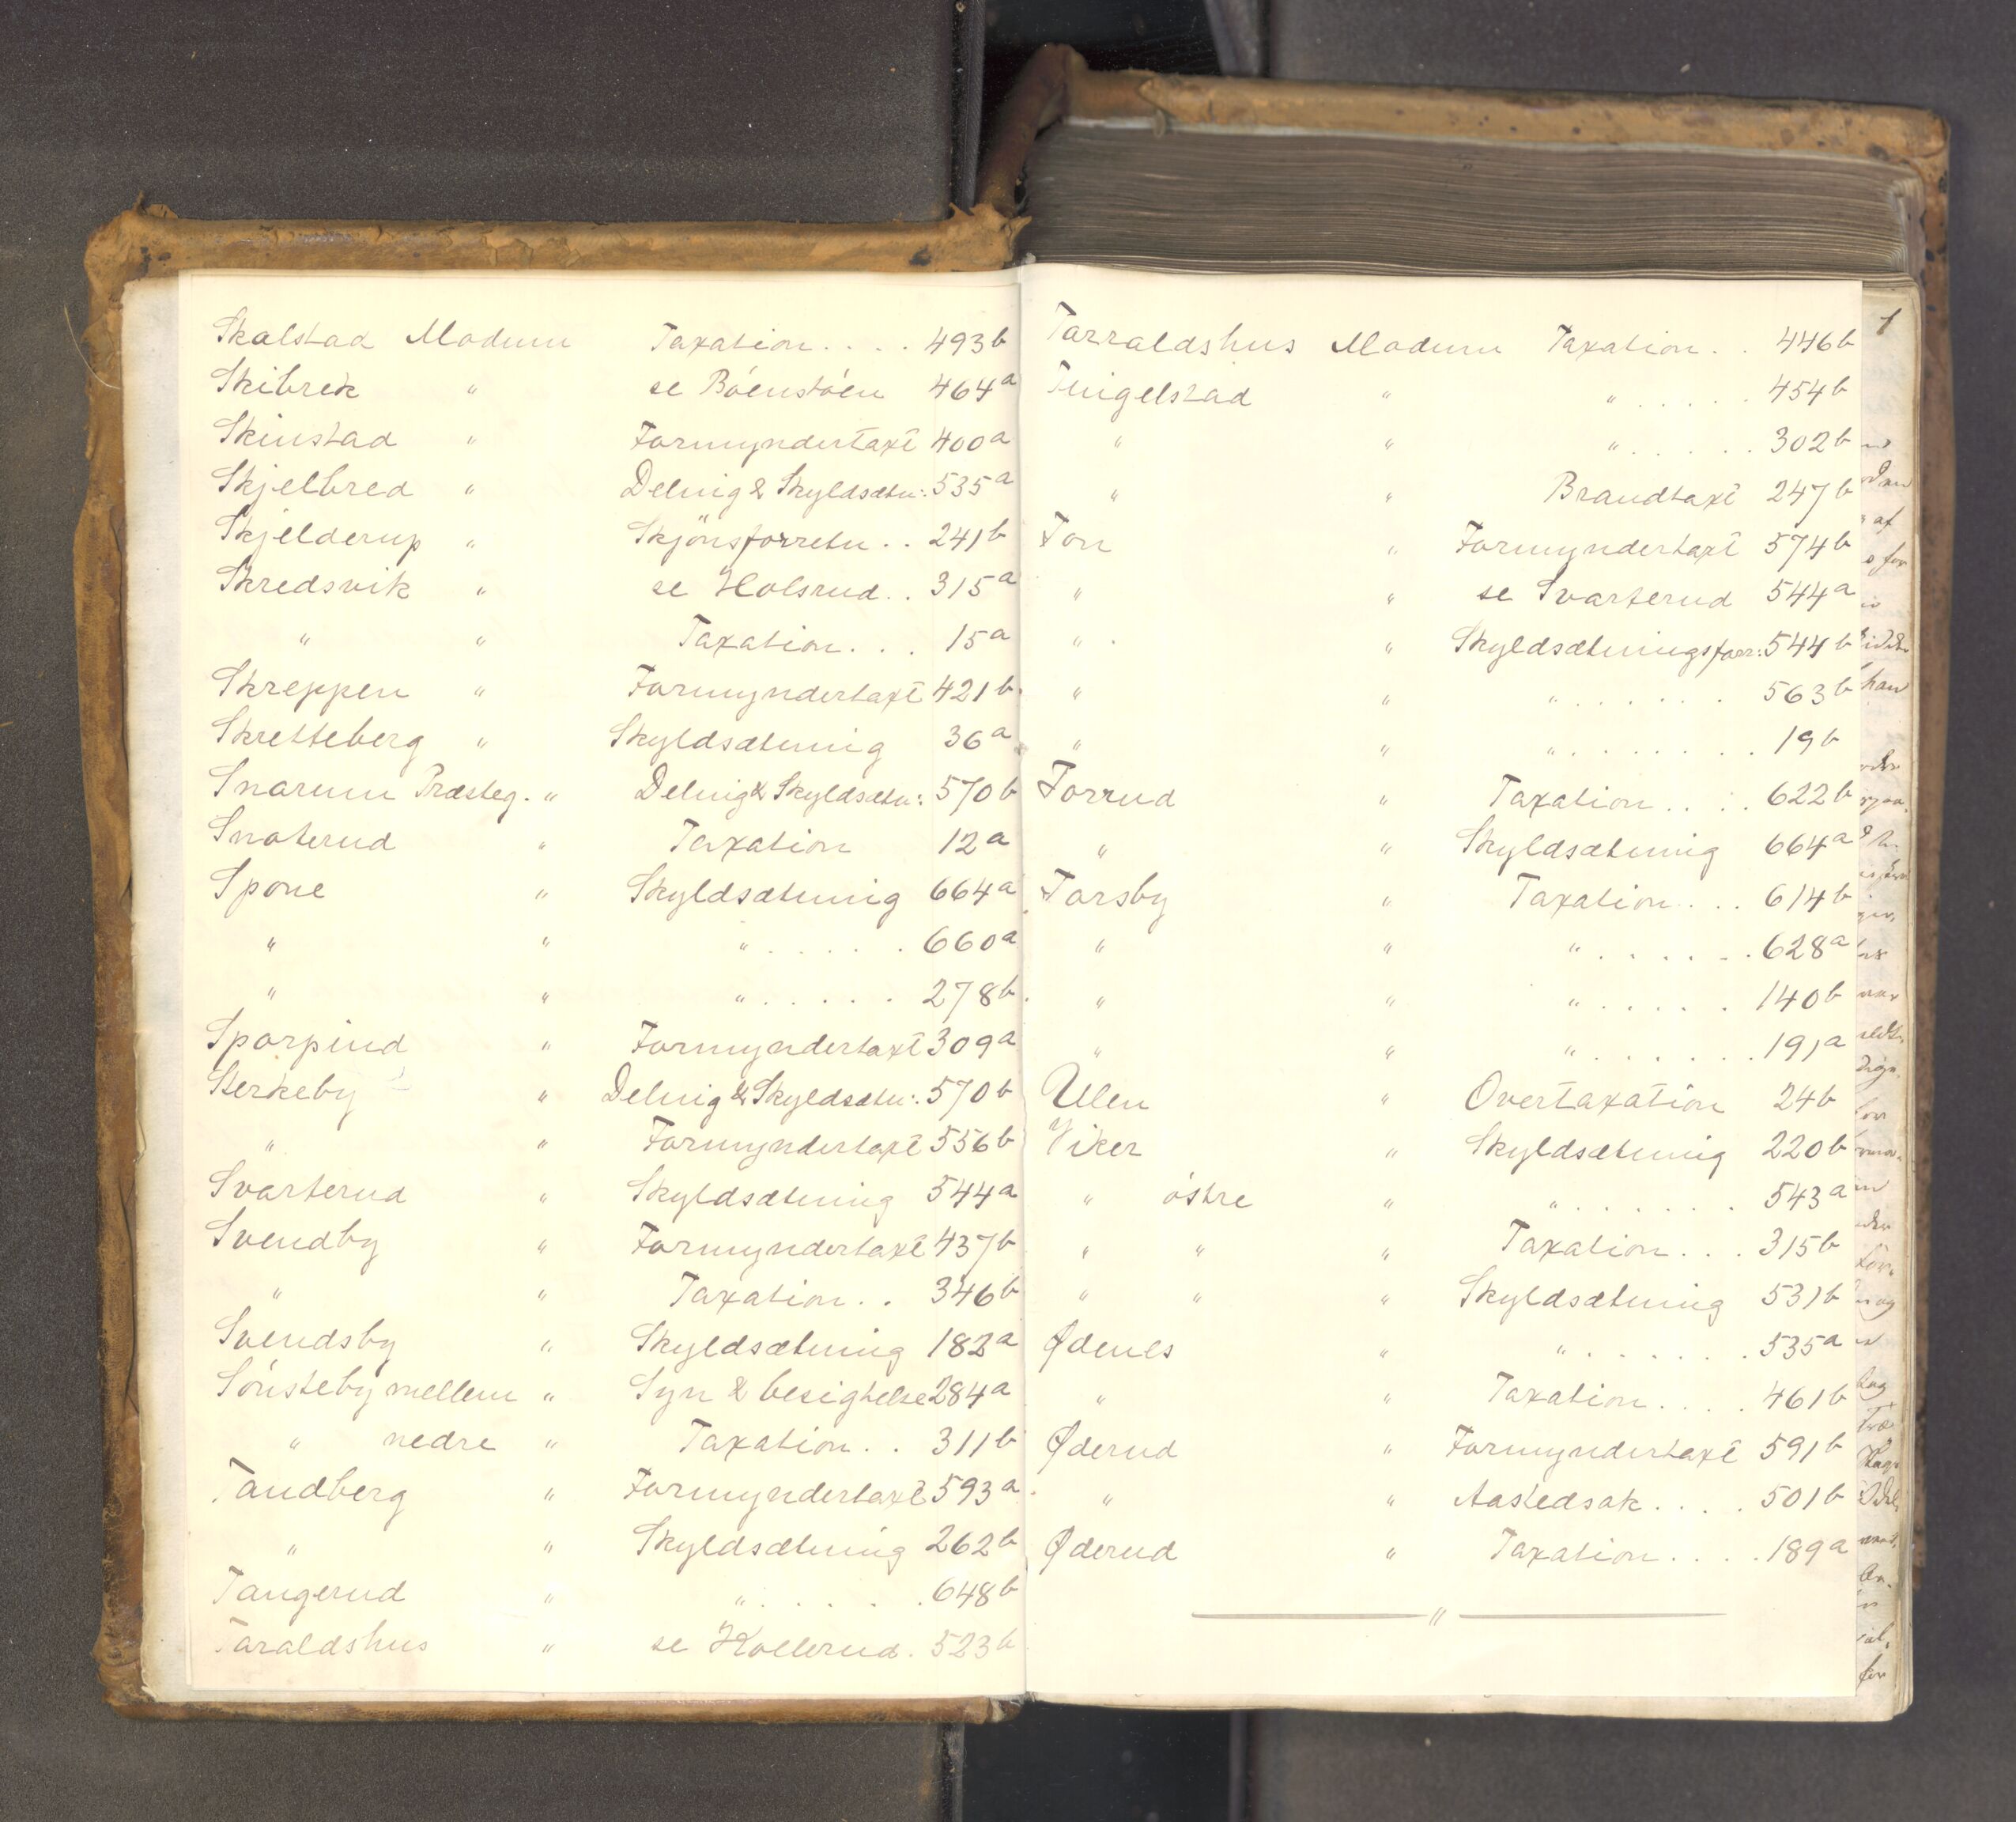 Skalstad Modum Taxation . . . . 493 b
Skibrek " se Bóenstóen 464 a
Skinstad " Formyndertaxt 400 a
Skjelbred " Deling & Skyldsætn: 535 a
Skjelderup " Skjönsforretn . . 241 b
Skredsvik " se Holsrud . . 315 a
" " Taxation . . . 15 a
Skreppen " Formyndertaxt 421 b
Skretteberg " Skyldsætning 36 a
Snarum Præsteg. " Deling & Skyldsætn: 570 b
Snoterud " Taxation 12 a
Spone " Skyldsætning 664 a
" " " . . . . . . 660 a
" " " . . . . . . 278 b
Sporpind " Formyndertaxt 309 a
Sterkeby " Deling & Skyldsætn: 570 b
" " Formyndertaxt 556 b
Svarterud " Skyldsætning 544 a
Svendby " Formyndertaxt 437 b
" " Taxation . . 346 b
Svendsby " Skyldsætning 182 a
Sónsteby mellem " Syn & besigtelse 284 a
" nedre " Taxation . . 311 b
Tandberg " Formyndertaxt 593 a
" " Skyldsætning 262 b
Tangerud " " . . . . . . 648 b
Taraldshus " se Kollerud . 523 b
Tarraldshus Modum Taxation . . 446 b
Tingelstad " " . . . . . 454 b
" " " . . . . . . 302 b
" " Brandtaxt 247 b
Ton " Formyndertaxt 574 b
" " se Svarterud 544 a
" " Skyldsætningsforr: 544 b
" " " . . . . . . . 563 b
" " " . . . . . . . . 19 b
Torrud " Taxation . . . . 622 b
" " Skyldsætning 664 a
Torsby " Taxation . . . 614 b
" " " . . . . . . . 628 a
" " " . . . . . . 140 b
" " " . . . . . . . 191 a
Ulen " Overtaxation 24 b
Viker " Skyldsætning 220 b
" óstre " " . . . . . . . 543 a
" " " Taxation . . . 315 b
" " " Skyldsætning 531 b
Ødenes " " . . . . . . . . 535 a
" " Taxation . . . . 461 b
Øderud " Formyndertaxt 591 b
" " Aastedsak . . . . 501 b
Øderud " Taxation . . . . 189 a
"
1